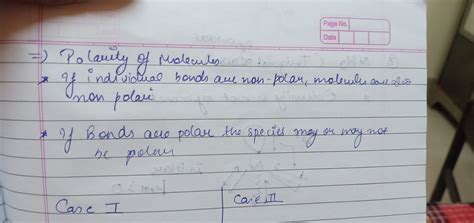 Page No.
Date
=> Polarity of Molecules
* If individual bonds are non-polar, molecules are also
non polar
* If Bonds are polar the species may or may not
be polar
Case I
Case II